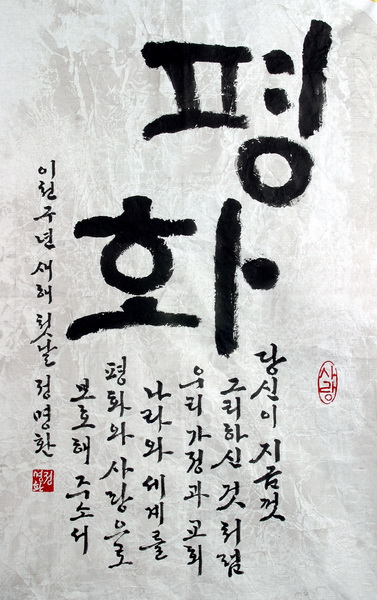 평
화
당신이 지금껏
그리하신 것처럼
우리 가정과 교회
나라와 세계를
평화와 사랑으로
보호해 주소서
이천구년 새해 첫날 정명환
사랑
정명환